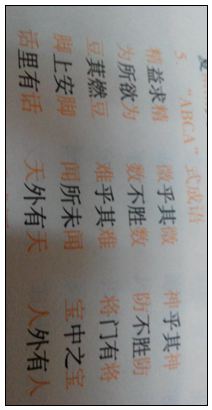 5. “ABCA”式成语
精益求精 微乎其微 神乎其神
为所欲为 数不胜数 防不胜防
豆萁燃豆 难乎其难 将门有将
脚上安脚 闻所未闻 宝中之宝
话里有话 天外有天 人外有人